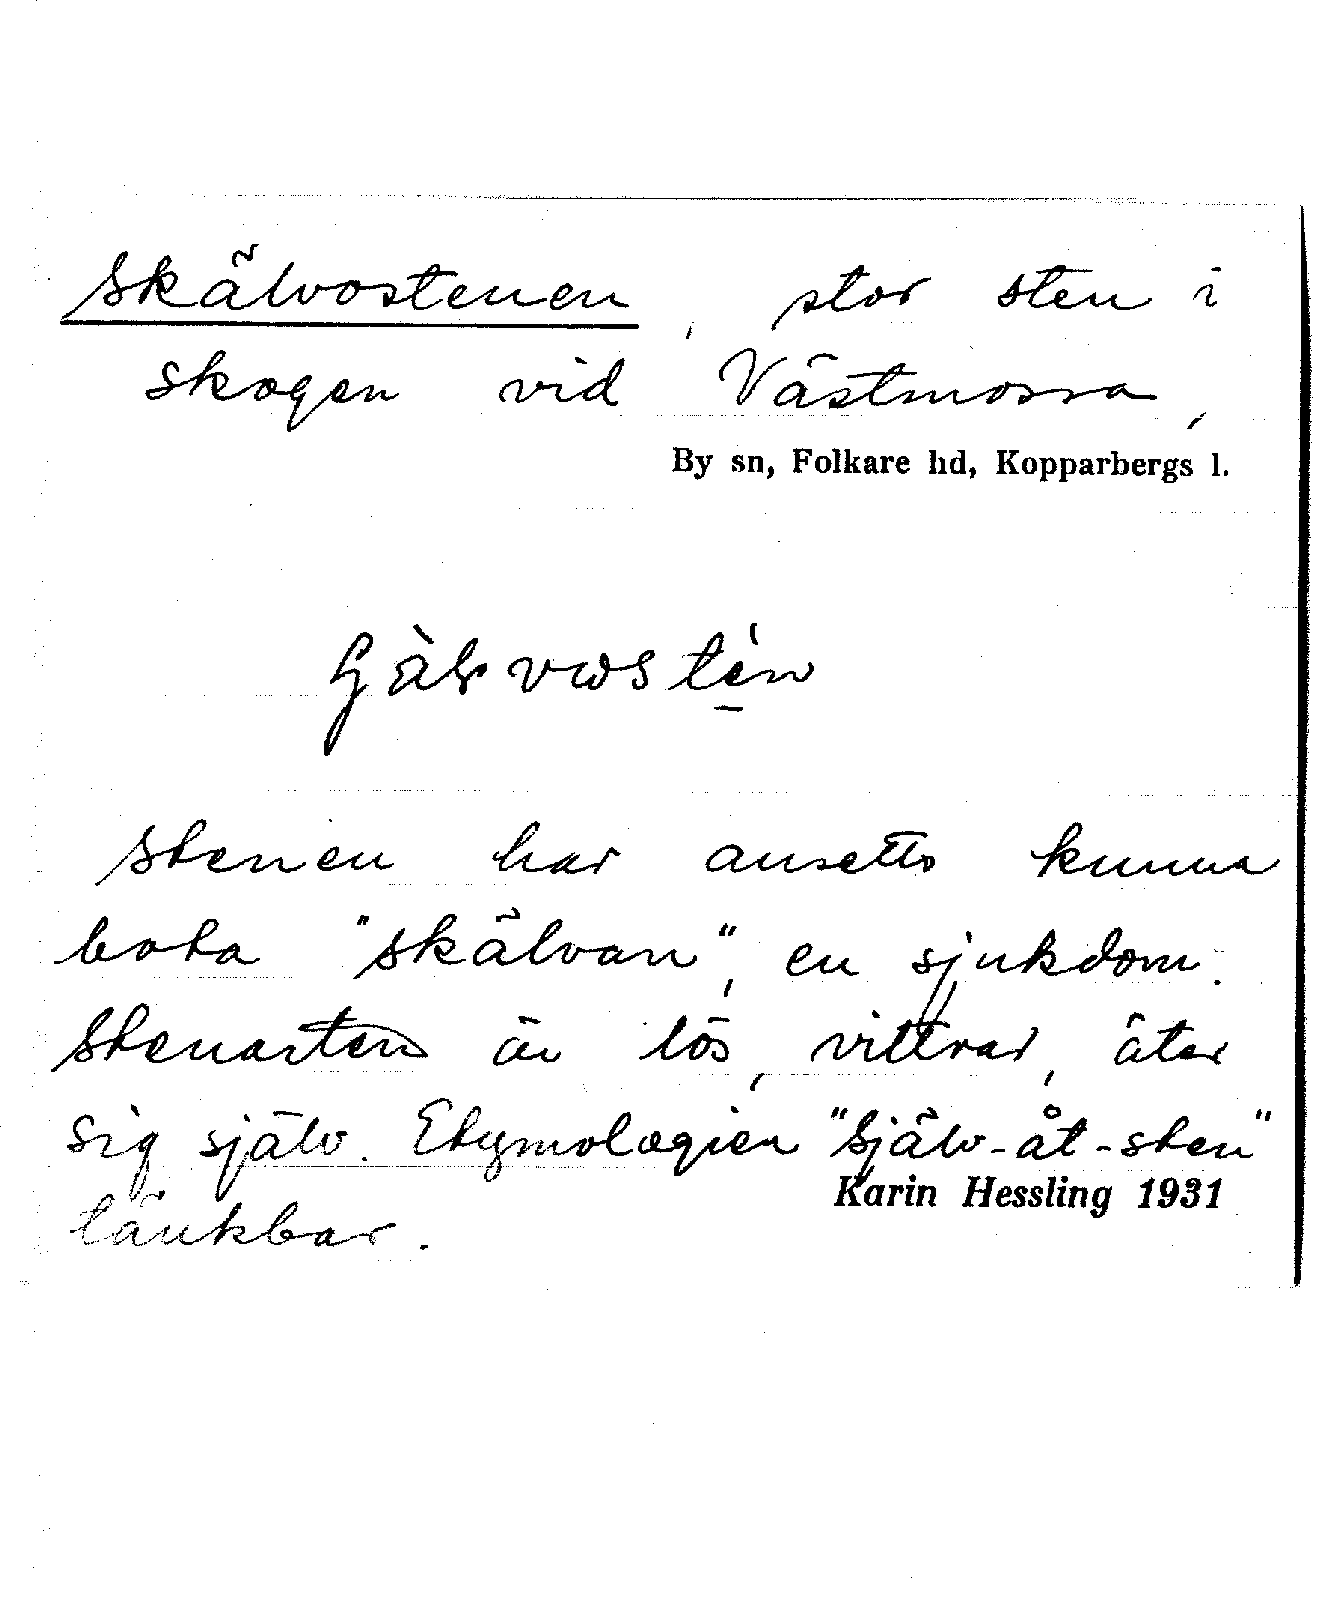 Skälvostenen, stor sten i
skogen vid Västmossa,
By sn, Folkare hd, Kopparbergs l.
Stenen har ansetts kunna
bota "skälvan", en sjukdom.
Stenarten är lös, vittrar, äter
sig själv. Etymologien "Själv-åt-sten"
Karin Hessling 1931
tänkbar.